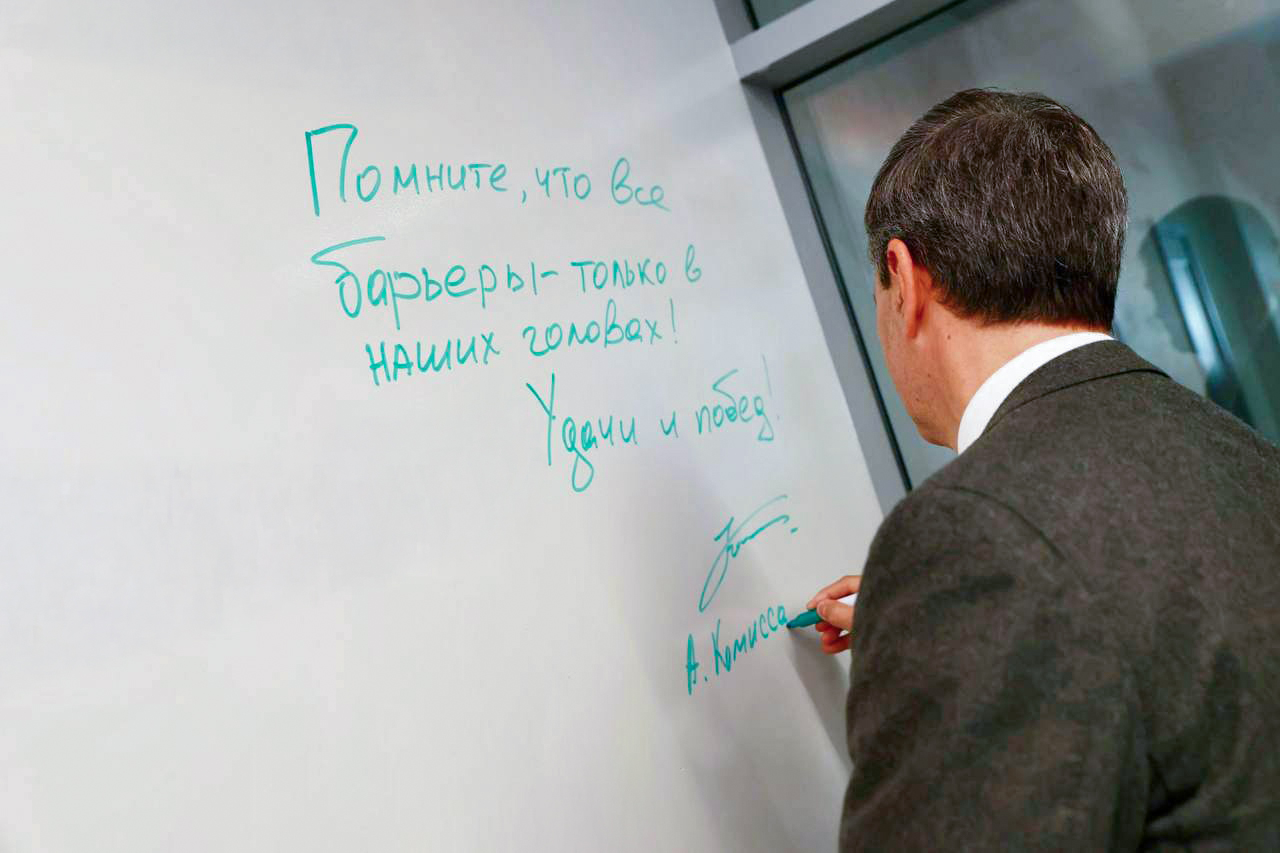 Помните, что все
барьеры - только в
наших головах!
Удачи и побед!
А. Комисса